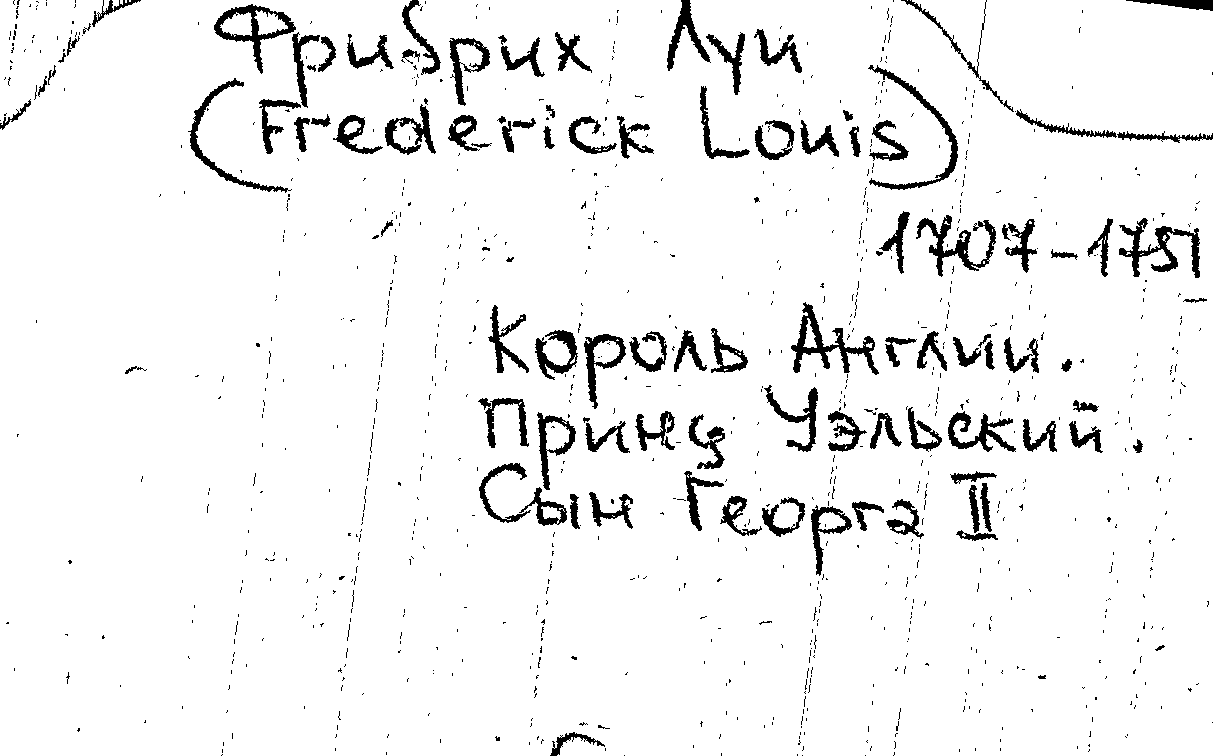 Фрибрих Луи
(Frederick Louis)
1707-1751
Король Англии.
Принц Уэльский.
Сын Георга II